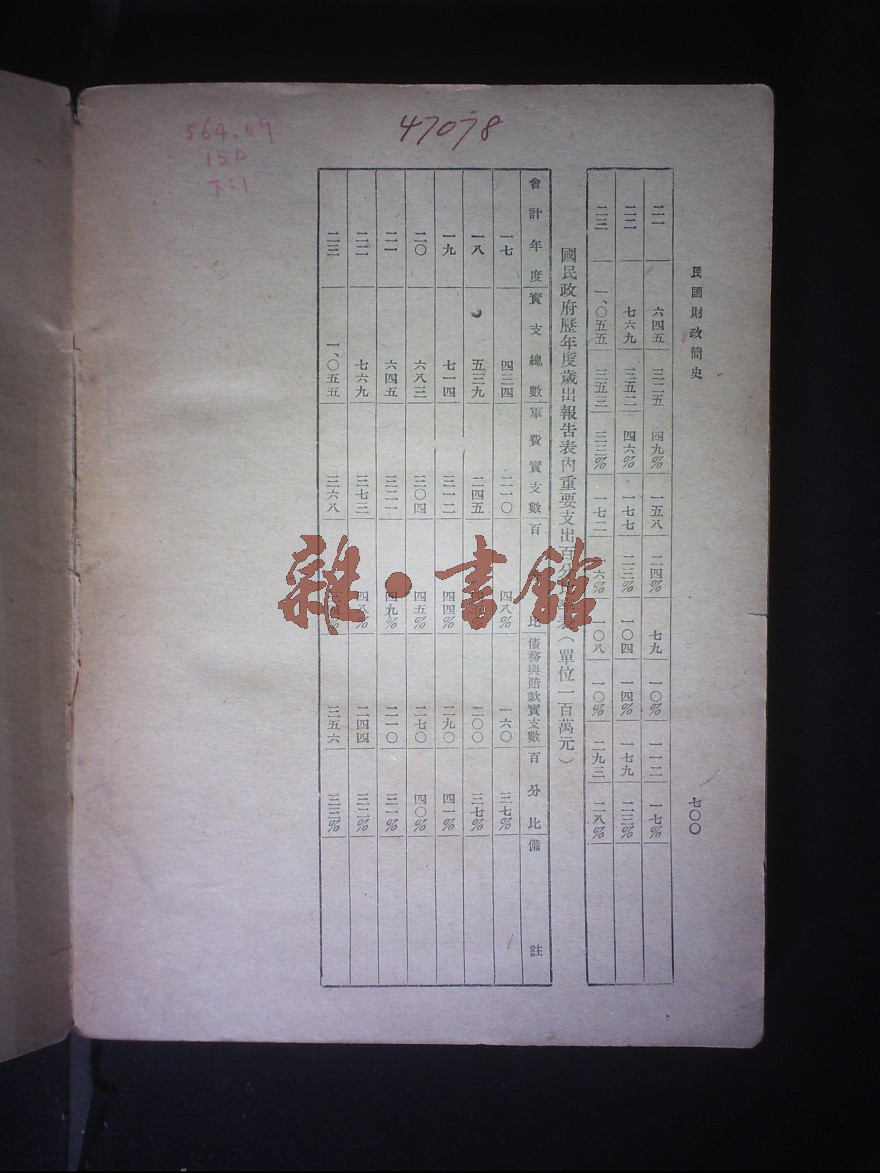 564.09
150
下:1
47078
民國財政簡史
七〇〇
二一 六四五 三二五 四九% 一五八 二四% 七九 一〇% 一一二 一七%
二二 七六九 三五二 四六% 一七七 二三% 一〇四 一四% 一七九 二三%
二三 一、〇五五 三五三 三三% 一七二 六% 一〇八 一〇% 二九三 二八%
國民政府歷年度歲出報告表內重要支出百分 (單位一百萬元)
會計年度 實支總數 軍費實支數 百 比 債務與賠款實支數 百分比 備註
一七 四三四 二一〇 四八% 一六〇 三七%
一八 五三九 二四五 二〇〇 三七%
一九 七一四 三一二 四四% 二九〇 四一%
二〇 六八三 三〇四 四五% 二七〇 四〇%
二一 六四五 三二一 四九% 二一〇 三一%
二二 七六九 三七三 四八% 二四四 三二%
二三 一、〇五五 三六八 三五六 三三%
雜·書館